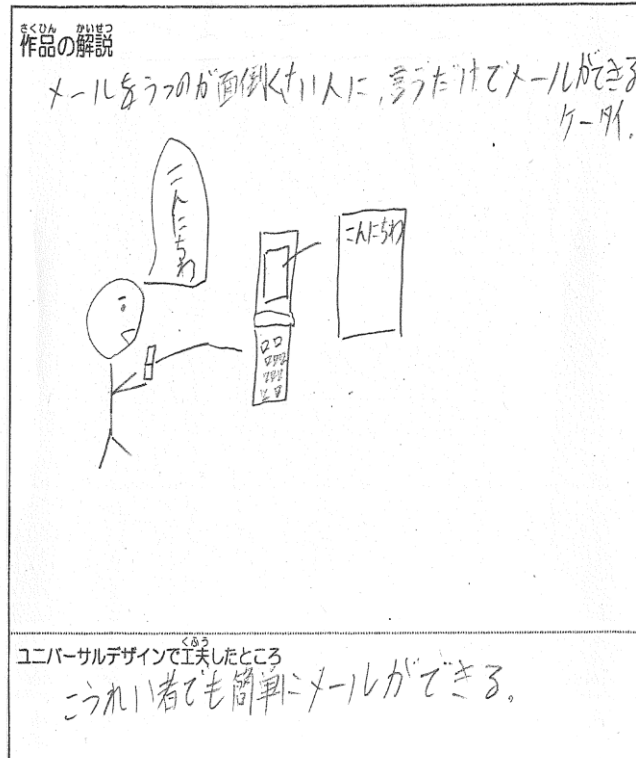 さくひん かいせつ
作品の解説
メールをうつのが面倒くさい人に、言うだけでメールができる
ケータイ。
こんにちわ
こんにちわ
くふう
ユニバーサルデザインで工夫したところ
こうれい者でも簡単にメールができる。